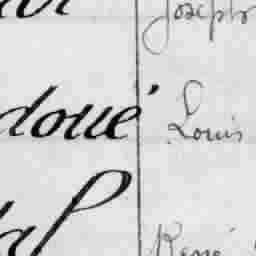 Joseph
doué Louis
René